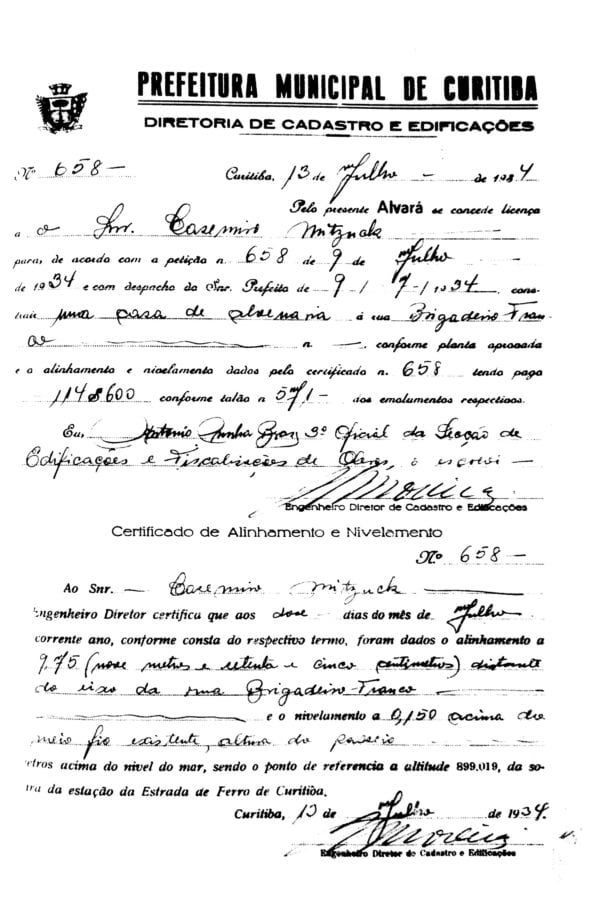 PREFEITURA MUNICIPAL DE CURITIBA
DIRETORIA DE CADASTRO E EDIFICAÇÕES
Nº 658 — Curitiba, 13 de Julho - de 1934
Pelo presente Alvará se concede licença
a o Snr. Casemiro Mitzuck
para, de acordo com a petição n. 658 de 9 de Julho
de 1934 e com despacho do Snr. Prefeito de 9 / 7 / 1934, cons-
truir uma casa de alvenaria á rua Brigadeiro Fran-
co n. —, conforme planta aprovada
e o alinhamento e nivelamento dados pelo certificado n. 658 tendo pago
114$600 conforme talão n 571 - dos emolumentos respectivos.
Eu, Antonio Cunha 3º Oficial da Secção de
Edificações e Fiscalisações de Obras, o escrevi —
Engenheiro Diretor de Cadastro e Edificações
Certificado de Alinhamento e Nivelamento
Nº 658 —
Ao Snr. — Casemiro Mitzuck
Engenheiro Diretor certifica que aos dose dias do mês de Julho
corrente ano, conforme consta do respectivo termo, foram dados o alinhamento a
9,75 (nove metros e setenta e cinco centimetros) distante
do eixo da rua Brigadeiro Franco —
e o nivelamento a 0,150 acima do
meio fio existente, altura do passeio
etros acima do nivel do mar, sendo o ponto de referencia a altitude 899,019, da so-
ira da estação da Estrada de Ferro de Curitiba.
Curitiba, 13 de Julho de 1934.
Engenheiro Diretor de Cadastro e Edificações